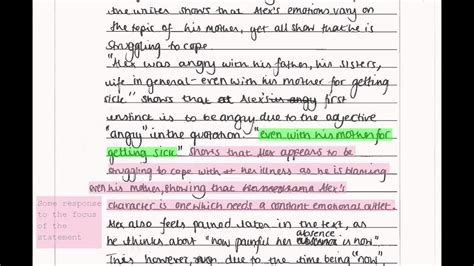 the writer shows that Alex's emotions vary on
the topic of his mother, yet all show that he is
struggling to cope.
"Alex was angry with his father, his sisters,
life in general - even with his mother for getting
sick." shows that Alex's first
instinct is to be angry due to the adjective
"angry" in the quotation. "even with his mother for
getting sick" shows that Alex appears to be
struggling to cope with her illness as he is blaming
even his mother, showing that Alex's
character is one which needs a constant emotional outlet.
Some response
to the focus
of the
statement
Alex also feels pained later in the text, as
he thinks about "how painful her absence is now".
This however, due to the time being "now",